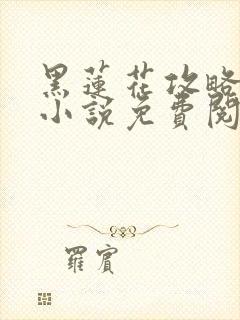 黑蓮花攻略
小說免費閱
羅賓